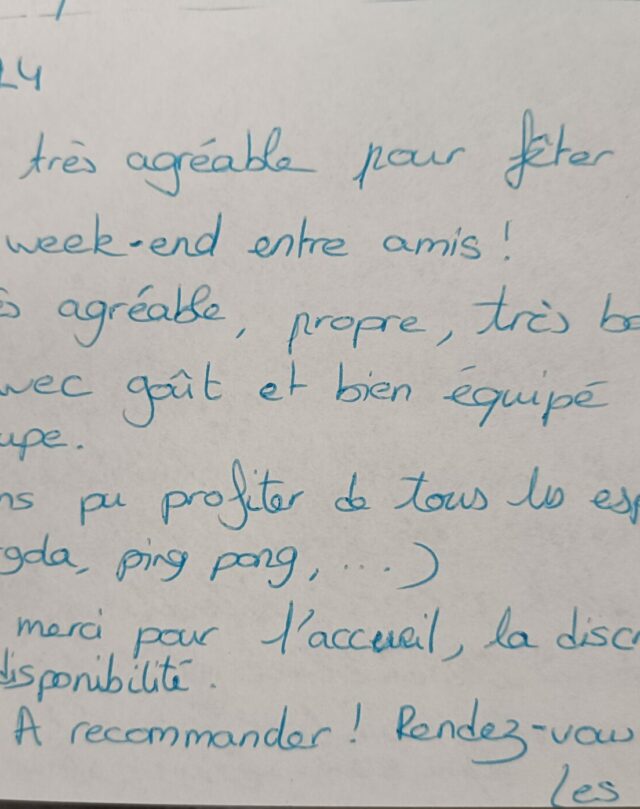 24
très agréable pour fêter
week-end entre amis !
ès agréable, propre, très be
vec goût et bien équipé
upe.
ns pu profiter de tous les esp
gola, ping pong, ....)
merci pour l'accueil, la discr
disponibilité.
A recommander ! Rendez-vous
Les